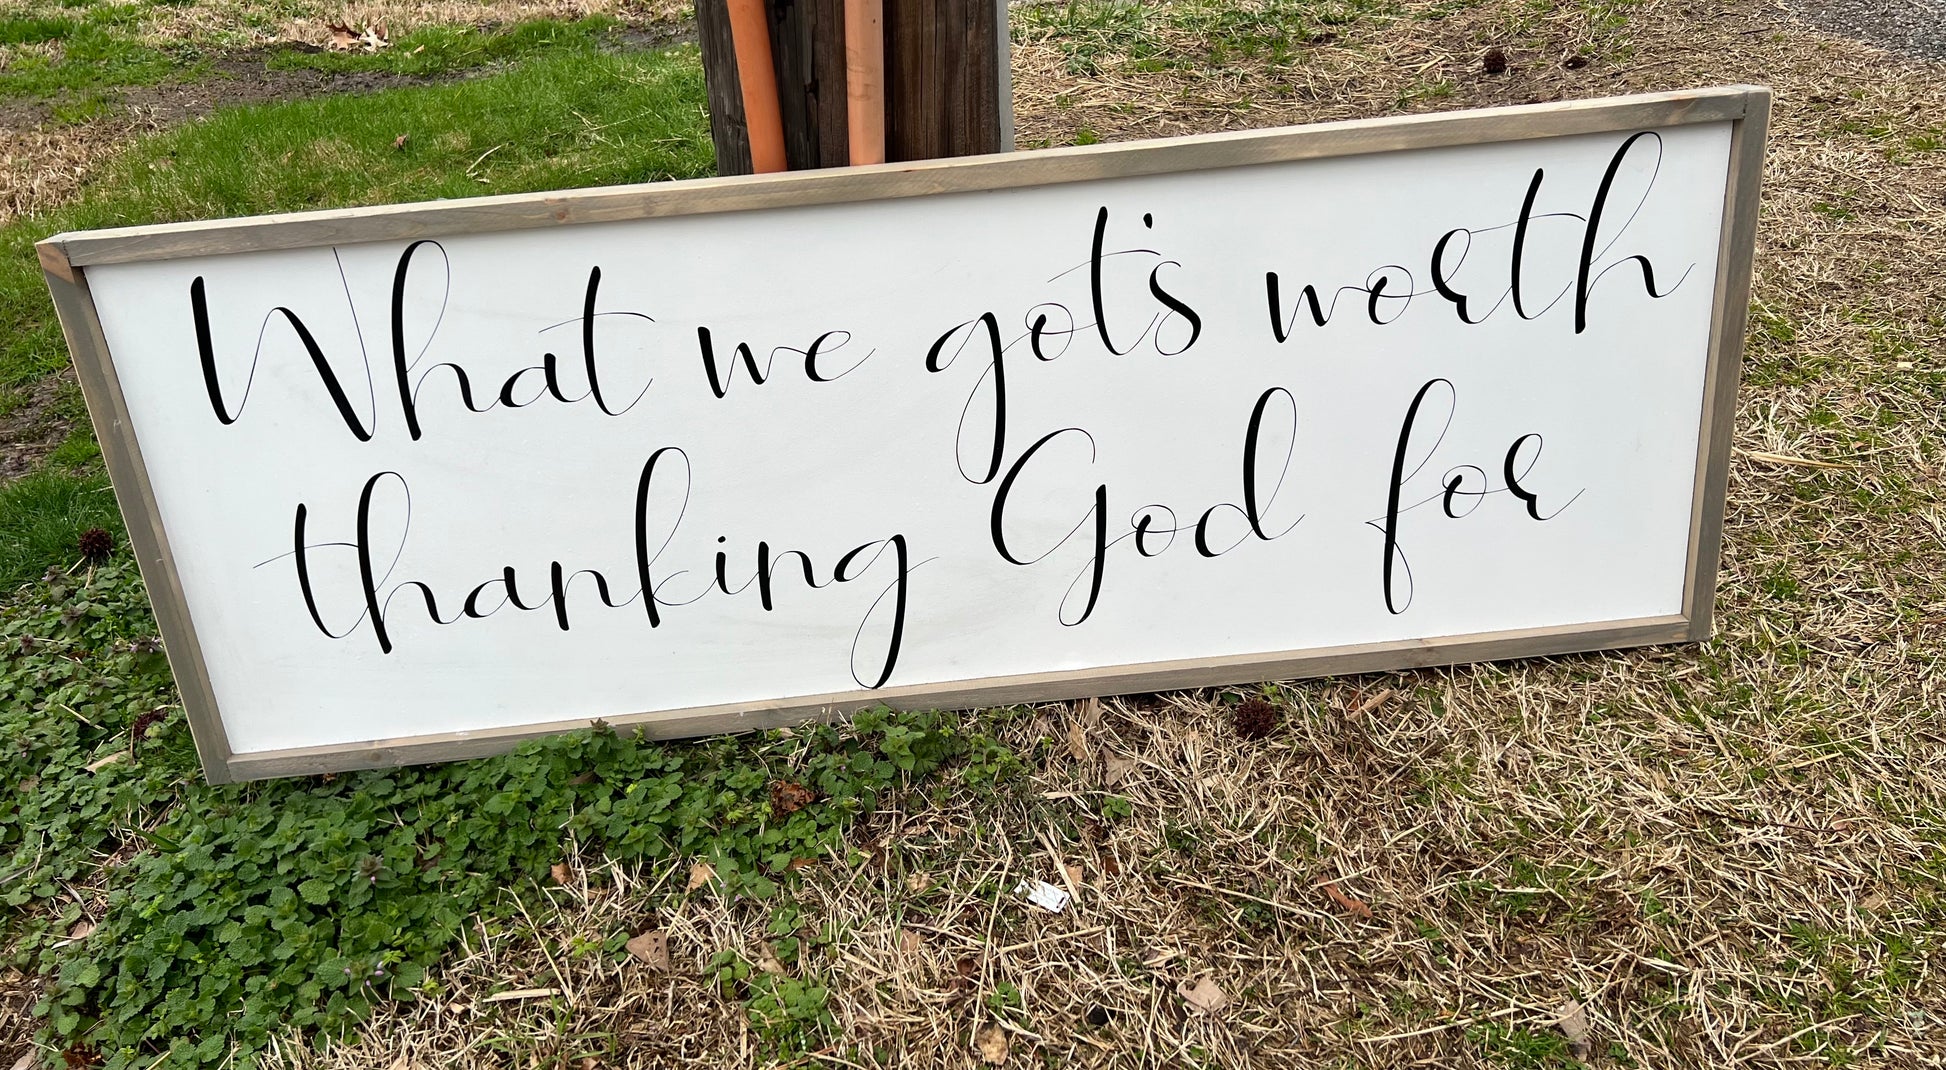 What we got's worth
thanking God for